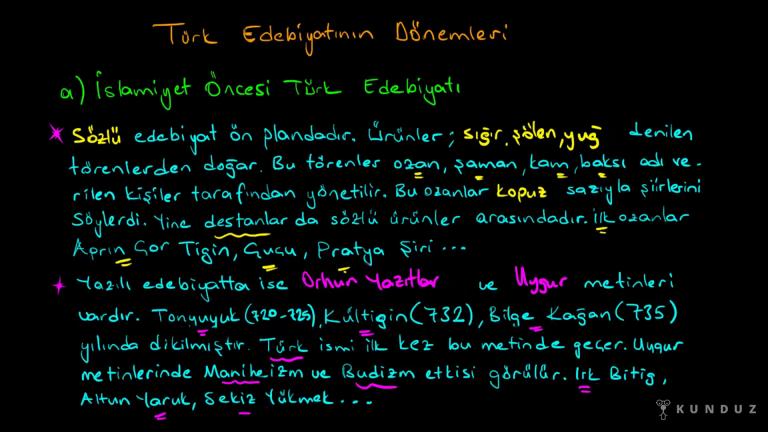 Türk Edebiyatının Dönemleri
a) İslamiyet Öncesi Türk Edebiyatı
* Sözlü edebiyat ön plandadır. Ürünler; sığır, şölen, yuğ denilen
törenlerden doğar. Bu törenler ozan, şaman, kam, baksı adı ve-
rilen kişiler tarafından yönetilir. Bu ozanlar kopuz sazıyla şiirlerini
söylerdi. Yine destanlar da sözlü ürünler arasındadır. İlk ozanlar
Aprın Çor Tigin, Çuçu, Pratya Şiri ...
* Yazılı edebiyatta ise Orhun Yazıtlar ve Uygur metinleri
vardır. Tonyuyuk (720-725), Kültigin (732), Bilge Kağan (735)
yılında dikilmiştir. Türk ismi ilk kez bu metinde geçer. Uygur
metinlerinde Maniheizm ve Budizm etkisi görülür. Irk Bitig,
Altun Yaruk, Sekiz Yükmek ...
KUNDUZ